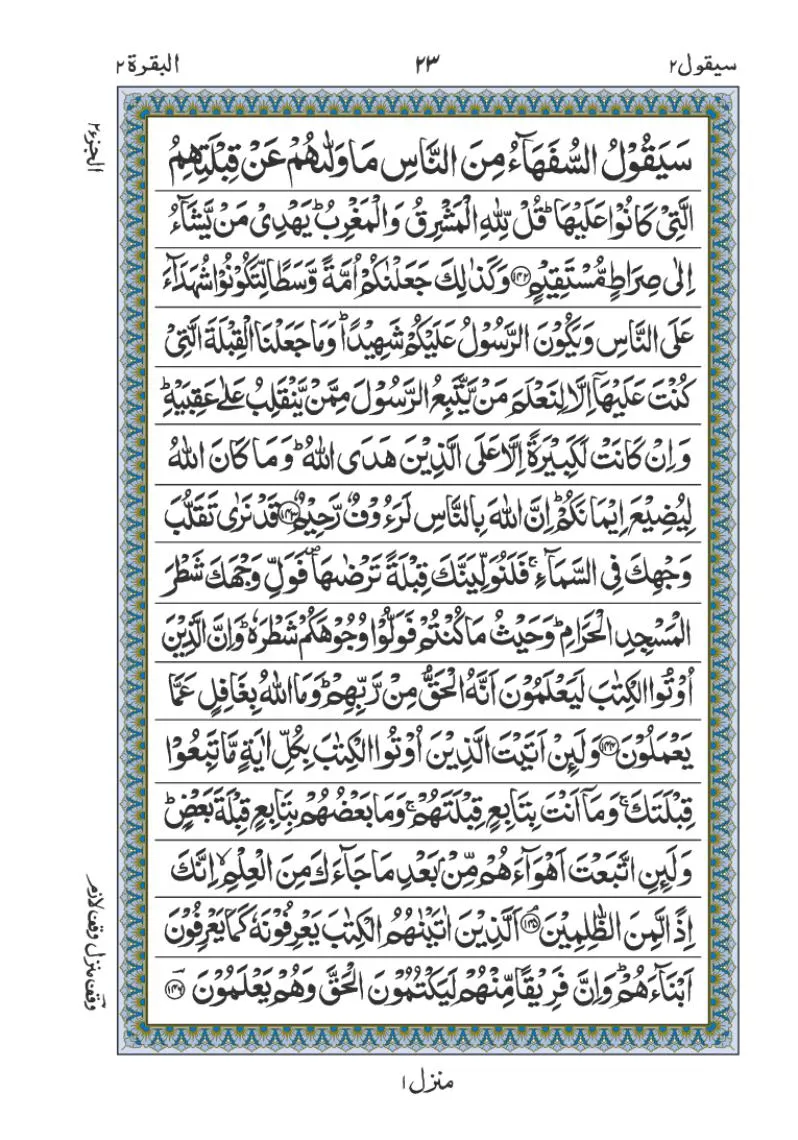 سيقول٢ ٢٣ البقرة٢
الجزء٢
سَيَقُوۡلُ السُّفَهَآءُ مِنَ النَّاسِ مَا وَلّٰٮهُمۡ عَنۡ قِبۡلَتِهِمُ
الَّتِىۡ كَانُوۡا عَلَيۡهَا ؕ قُلۡ لِّلّٰهِ الۡمَشۡرِقُ وَالۡمَغۡرِبُ ؕ يَهۡدِىۡ مَنۡ يَّشَآءُ
اِلٰى صِرَاطٍ مُّسۡتَقِيۡمٍ ﴿۱۴۲﴾ وَكَذٰلِكَ جَعَلۡنٰكُمۡ اُمَّةً وَّسَطًا لِّتَکُوۡنُوۡا شُهَدَآءَ
عَلَى النَّاسِ وَيَكُوۡنَ الرَّسُوۡلُ عَلَيۡكُمۡ شَهِيۡدًا ؕ وَمَا جَعَلۡنَا الۡقِبۡلَةَ الَّتِىۡ
كُنۡتَ عَلَيۡهَآ اِلَّا لِنَعۡلَمَ مَنۡ يَّتَّبِعُ الرَّسُوۡلَ مِمَّنۡ يَّنۡقَلِبُ عَلٰى عَقِبَيۡهِ ؕ
وَاِنۡ كَانَتۡ لَكَبِيۡرَةً اِلَّا عَلَى الَّذِيۡنَ هَدَى اللّٰهُ ؕ وَمَا كَانَ اللّٰهُ
لِيُضِيْعَ اِيۡمَانَكُمۡ ؕ اِنَّ اللّٰهَ بِالنَّاسِ لَرَءُوۡفٌ رَّحِيۡمٌ ﴿۱۴۳﴾ قَدۡ نَرٰى تَقَلُّبَ
وَجۡهِكَ فِى السَّمَآءِ ۚ فَلَـنُوَلِّيَنَّكَ قِبۡلَةً تَرۡضٰٮهَا ۖ فَوَلِّ وَجۡهَكَ شَطۡرَ
الۡمَسۡجِدِ الۡحَـرَامِ ؕ وَحَيۡثُ مَا كُنۡتُمۡ فَوَلُّوۡا وُجُوۡهَكُمۡ شَطۡرَهٗ ؕ وَاِنَّ الَّذِيۡنَ
اُوۡتُوا الۡكِتٰبَ لَيَـعۡلَمُوۡنَ اَنَّهُ الۡحَـقُّ مِنۡ رَّبِّهِمۡ ؕ وَمَا اللّٰهُ بِغَافِلٍ عَمَّا
يَعۡمَلُوۡنَ ﴿۱۴۴﴾ وَلَٮِٕنۡ اَ تَيۡتَ الَّذِيۡنَ اُوۡتُوا الۡكِتٰبَ بِكُلِّ اٰيَةٍ مَّا تَبِعُوۡا
قِبۡلَتَكَ ۚ وَمَآ اَنۡتَ بِتَابِعٍ قِبۡلَتَهُمۡ ۚ وَمَا بَعۡضُهُمۡ بِتَابِعٍ قِبۡلَةَ بَعۡضٍ ؕ
وَلَٮِٕنِ اتَّبَعۡتَ اَهۡوَآءَهُمۡ مِّنۡۢ بَعۡدِ مَا جَآءَكَ مِنَ الۡعِلۡمِ ۙ اِنَّكَ
اِذًا لَّمِنَ الظّٰلِمِيۡنَ ﴿۱۴۵﴾ۘ اَلَّذِيۡنَ اٰتَيۡنٰهُمُ الۡكِتٰبَ يَعۡرِفُوۡنَهٗ كَمَا يَعۡرِفُوۡنَ
اَبۡنَآءَهُمۡؕ وَاِنَّ فَرِيۡقًا مِّنۡهُمۡ لَيَكۡتُمُوۡنَ الۡحَـقَّ وَهُمۡ يَعۡلَمُوۡنَ ﴿۱۴۶﴾
وقف منزل وقف لازم
منزل ١